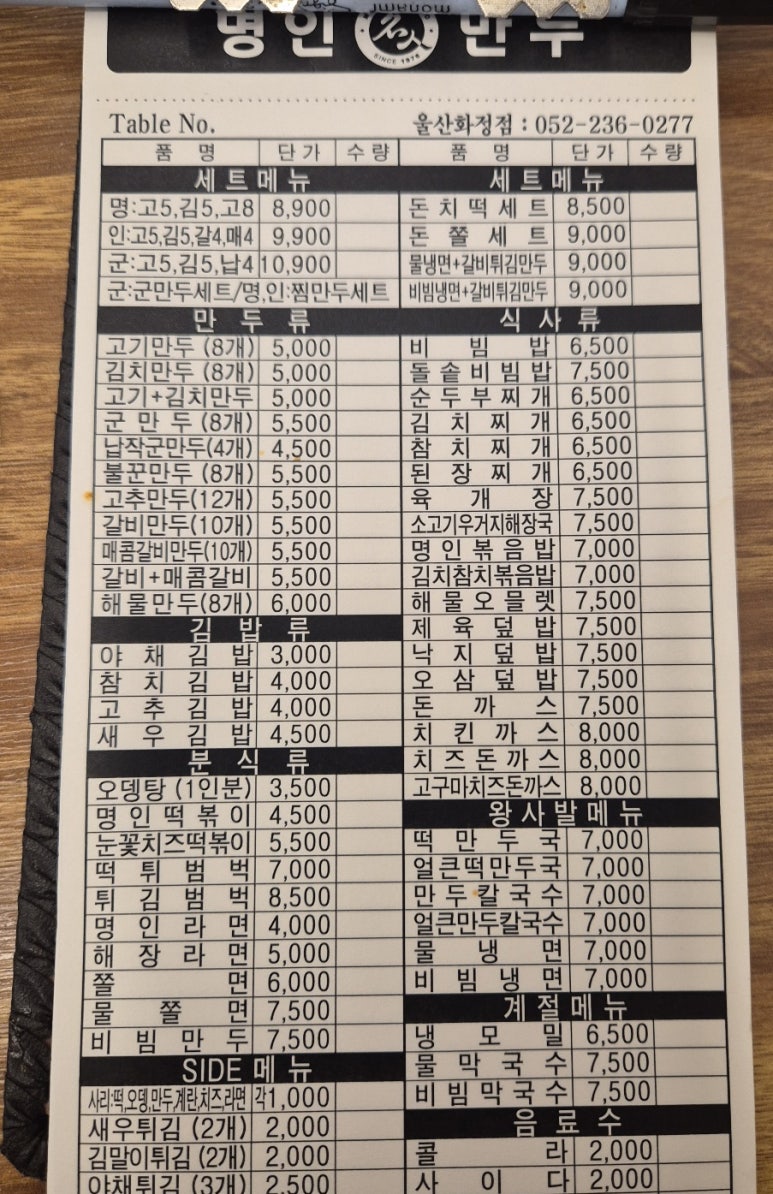 명인 만두
SINCE 1976
Table No. 울산화정점 : 052-236-0277
품 명 단가 수량
세트메뉴
명:고5,김5,고8 8,900
인:고5,김5,갈4,매4 9,900
군:고5,김5,납4 10,900
군:군만두세트/명,인:찜만두세트
만두류
고기만두 (8개) 5,000
김치만두 (8개) 5,000
고기+김치만두 5,000
군만두 (8개) 5,500
납작군만두(4개) 4,500
불꾼만두 (8개) 5,500
고추만두(12개) 5,500
갈비만두(10개) 5,500
매콤갈비만두(10개) 5,500
갈비+매콤갈비 5,500
해물만두(8개) 6,000
김밥류
야채김밥 3,000
참치김밥 4,000
고추김밥 4,000
새우김밥 4,500
분식류
오뎅탕 (1인분) 3,500
명인떡볶이 4,500
눈꽃치즈떡볶이 5,500
떡튀범벅 7,000
튀김범벅 8,500
명인라면 4,000
해장라면 5,000
쫄면 6,000
물쫄면 7,500
비빔만두 7,500
SIDE 메뉴
사리:떡,오뎅,만두,계란,치즈,라면 각1,000
새우튀김 (2개) 2,000
김말이튀김 (2개) 2,000
야채튀김 (3개) 2,500
품 명 단가 수량
세트메뉴
돈치떡세트 8,500
돈쫄세트 9,000
물냉면+갈비튀김만두 9,000
비빔냉면+갈비튀김만두 9,000
식사류
비빔밥 6,500
돌솥비빔밥 7,500
순두부찌개 6,500
김치찌개 6,500
참치찌개 6,500
된장찌개 6,500
육개장 7,500
소고기우거지해장국 7,500
명인볶음밥 7,000
김치참치볶음밥 7,000
해물오믈렛 7,500
제육덮밥 7,500
낙지덮밥 7,500
오삼덮밥 7,500
돈까스 7,500
치킨까스 8,000
치즈돈까스 8,000
고구마치즈돈까스 8,000
왕사발메뉴
떡만두국 7,000
얼큰떡만두국 7,000
만두칼국수 7,000
얼큰만두칼국수 7,000
물냉면 7,000
비빔냉면 7,000
계절메뉴
냉모밀 6,500
물막국수 7,500
비빔막국수 7,500
음료수
콜라 2,000
사이다 2,000